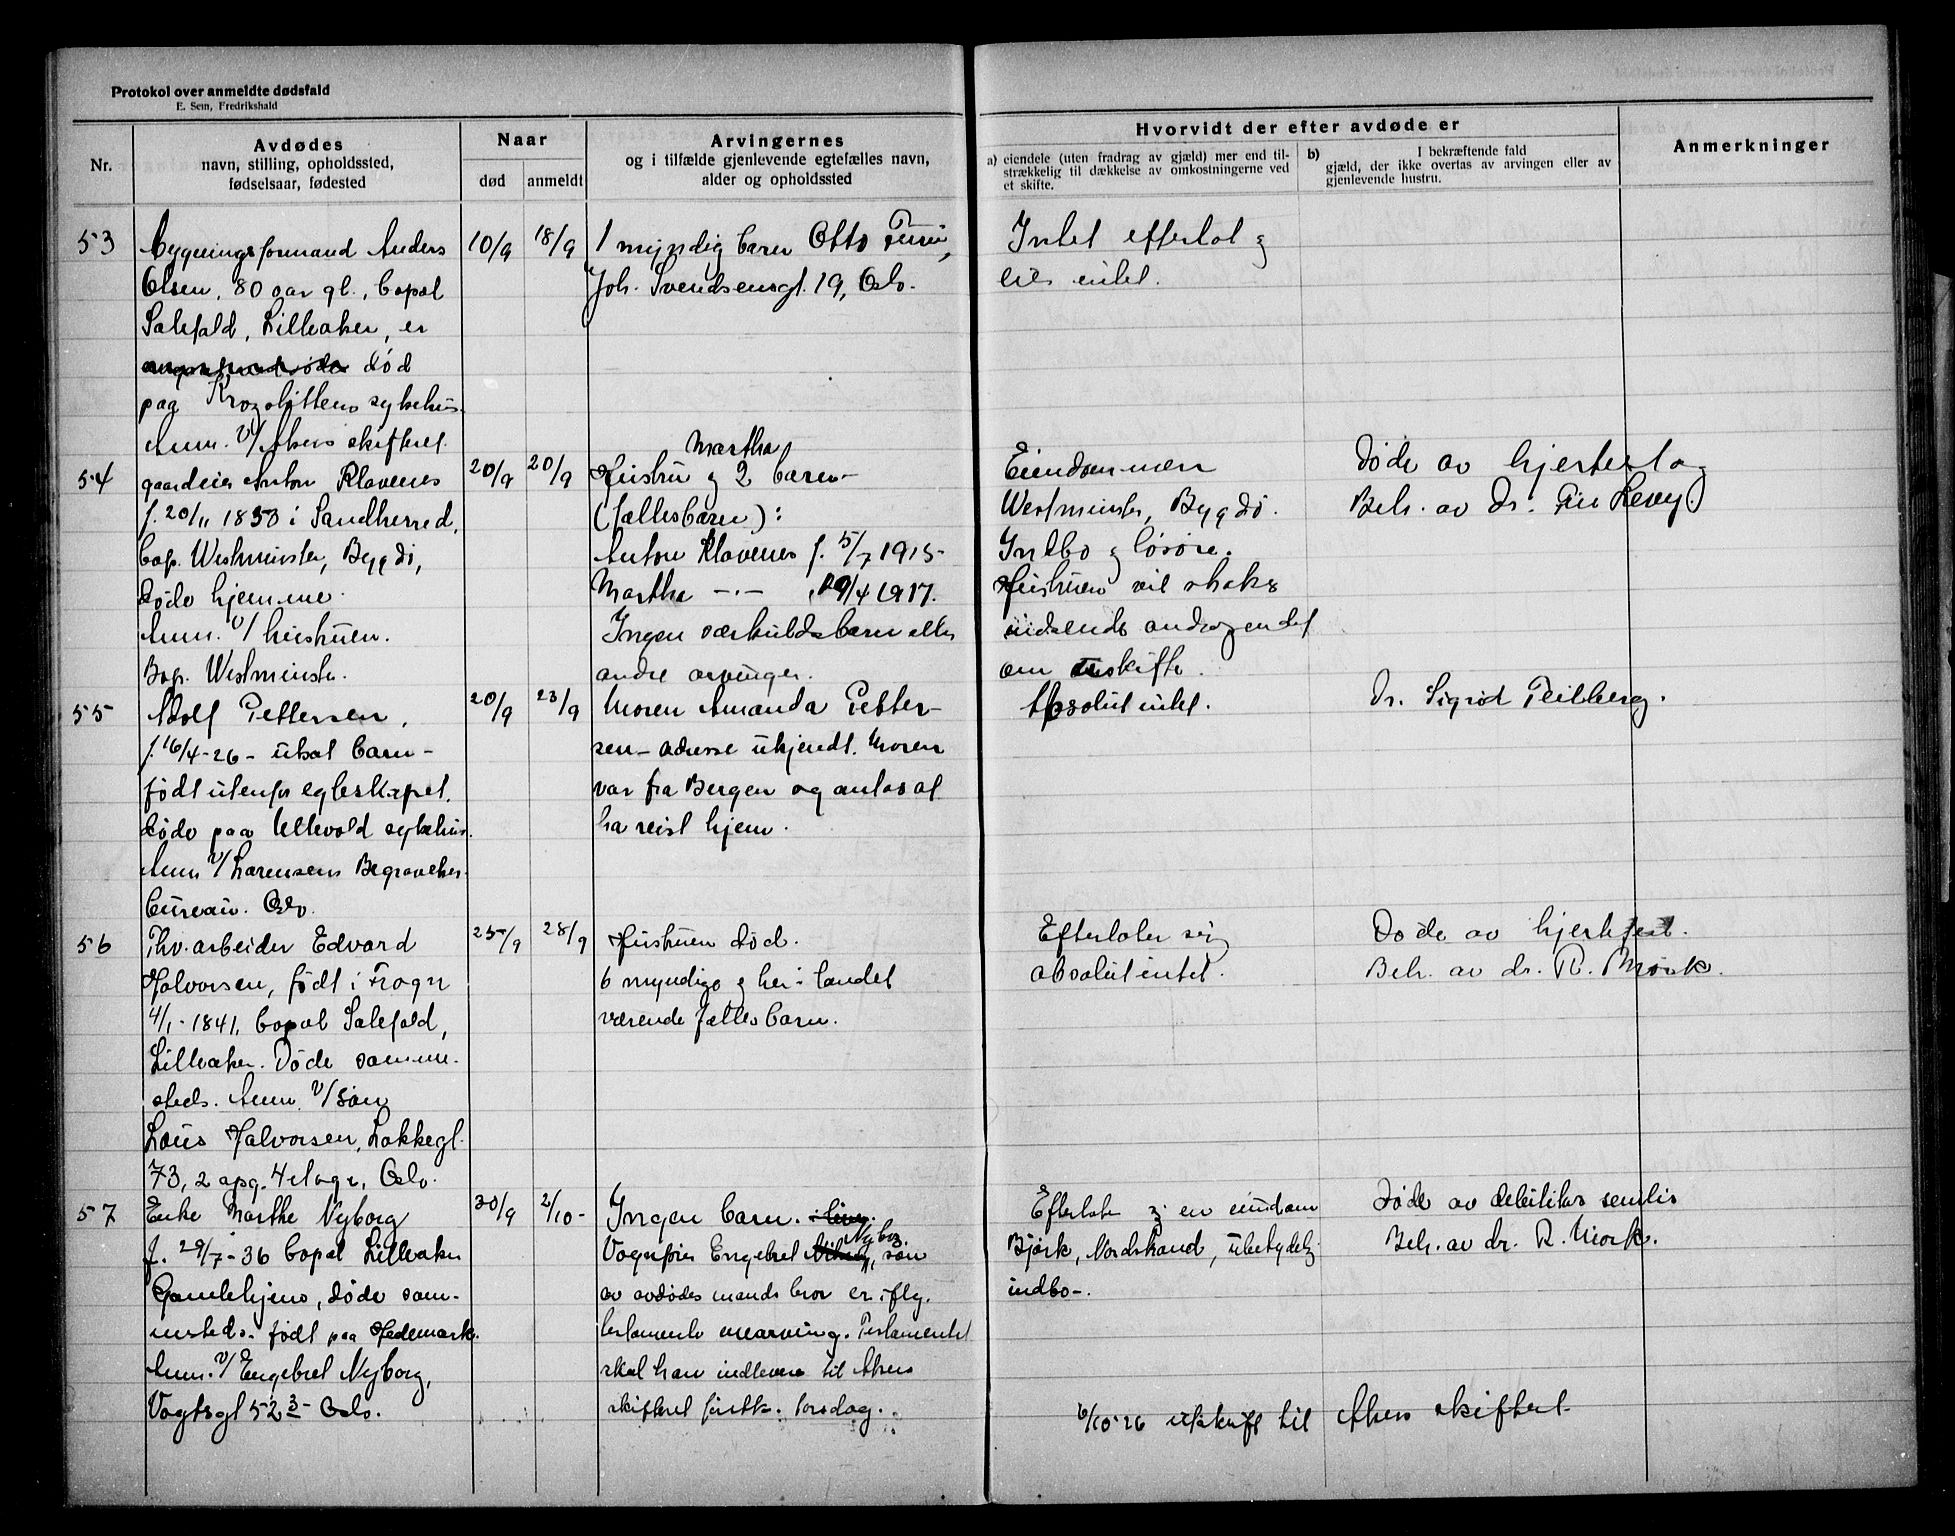 Protokol over anmeldte dødsfald
E. Sem, Fredrikshald
Nr.
Avdødes
navn, stilling, opholdssted,
fødselsaar, fødested
Naar
død
anmeldt
Arvingernes
og i tilfælde gjenlevende egtefælles navn,
alder og opholdssted
Hvorvidt der efter avdøde er
a) eiendele (uten fradrag av gjæld) mer end til-
strækkelig til dækkelse av omkostningerne ved
et skifte.
b) I bekræftende fald
gjæld, der ikke overtas av arvingen eller av
gjenlevende hustru.
Anmerkninger
53
Bygningsformand Anders
Olsen, 80 aar gl., bopal
Salefald, Lilleaker, er
død
paa Krogstøttens sykehus.
Anm. v/Akers skifteret.
10/9
18/9
1 myndig barn Otto
Joh. Svendsensgt. 19, Oslo.
Intet efterlot
eies intet.
54
gaardeier Anton Klavenes
f. 20/11 1853 i Sandherred,
bop. Westminster, Bygdø,
døde hjemme.
Anm. v/ hustruen.
Bop. Westminster.
20/9
20/9
Martha
Hustru og 2 barn-
(fællesbarn):
Anton Klavenes f. 5/7 1915-
Martha -.- 1917.
Ingen særkuldsbarn eller
andre arvinger.
Eiendommen
Westminster, Bygdø.
Indbo og løsøre.
Hustruen vil
indsende andragendet
om uskifte.
Døde av hjerteslag
Beh. av Dr. Levy
55
Adolf Pettersen.
f. 16/4-26- barn-
født utenfor egteskapet.
døde paa Ullevold sykehus.
Anm v/Lorensens Begravelses-
bureau. Oslo.
20/9
23/9
Moren Amanda Petter-
sen- adresse ukjendt. Moren
var fra Bergen og antas at
ha reist hjem.
Absolut intet.
Dr. Sigrid
56
Thv. arbeider Edvard
Halvorsen, født i Frogn
4/1-1841, bopal Salefald,
Lilleaker. Døde samme-
steds. Anm. v/søn
Halvorsen, Lakkegt.
73, 2 opg. 4 etage, Oslo.
25/9
28/9
Hustruen død.
6 myndige og her i landet
værende fælles barn.
Efterlater sig
absolut intet.
Døde av hjertefeil.
Beh. av dr. R. Mørk.
57
Enke Marthe Nyborg
f. 29/7-36 bopal Lilleaker
Gamlehjem, døde sam-
mesteds. født paa Hedemark.
Anm. v/Engebret Nyborg,
Vogtsgt 52 3- Oslo.
30/9
2/10-
Ingen barn.
Nyborg
Vognfører Engebret, søn
av avdødes mands bror er iflg.
testamente enearving. Testamentet
skal han indlevere til Akers
skifteret førstk. torsdag.
Efterlater en eiendom
Bjørk, Nordstrand, ubetydelig
indbo-.
Døde av debilitas senilis
Beh. av dr. R. Mork.
6/10-26 utskrift til Akers skifteret